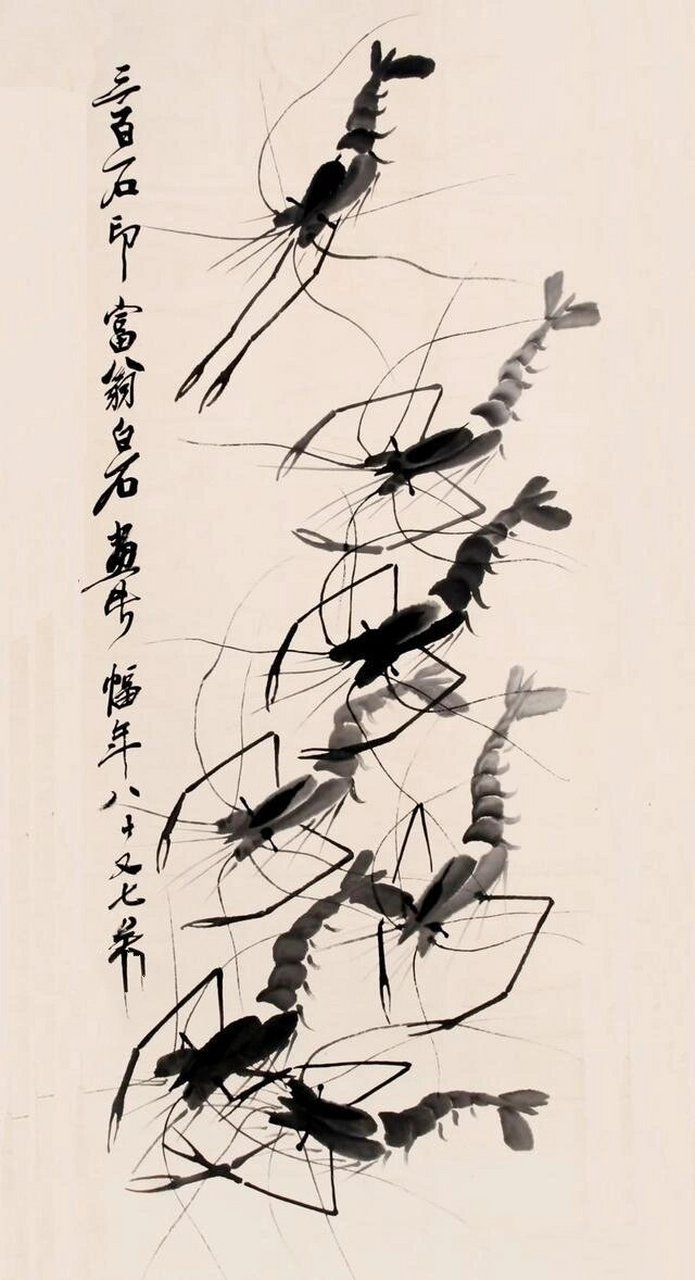 三百石印富翁白石畫幅年八十又七